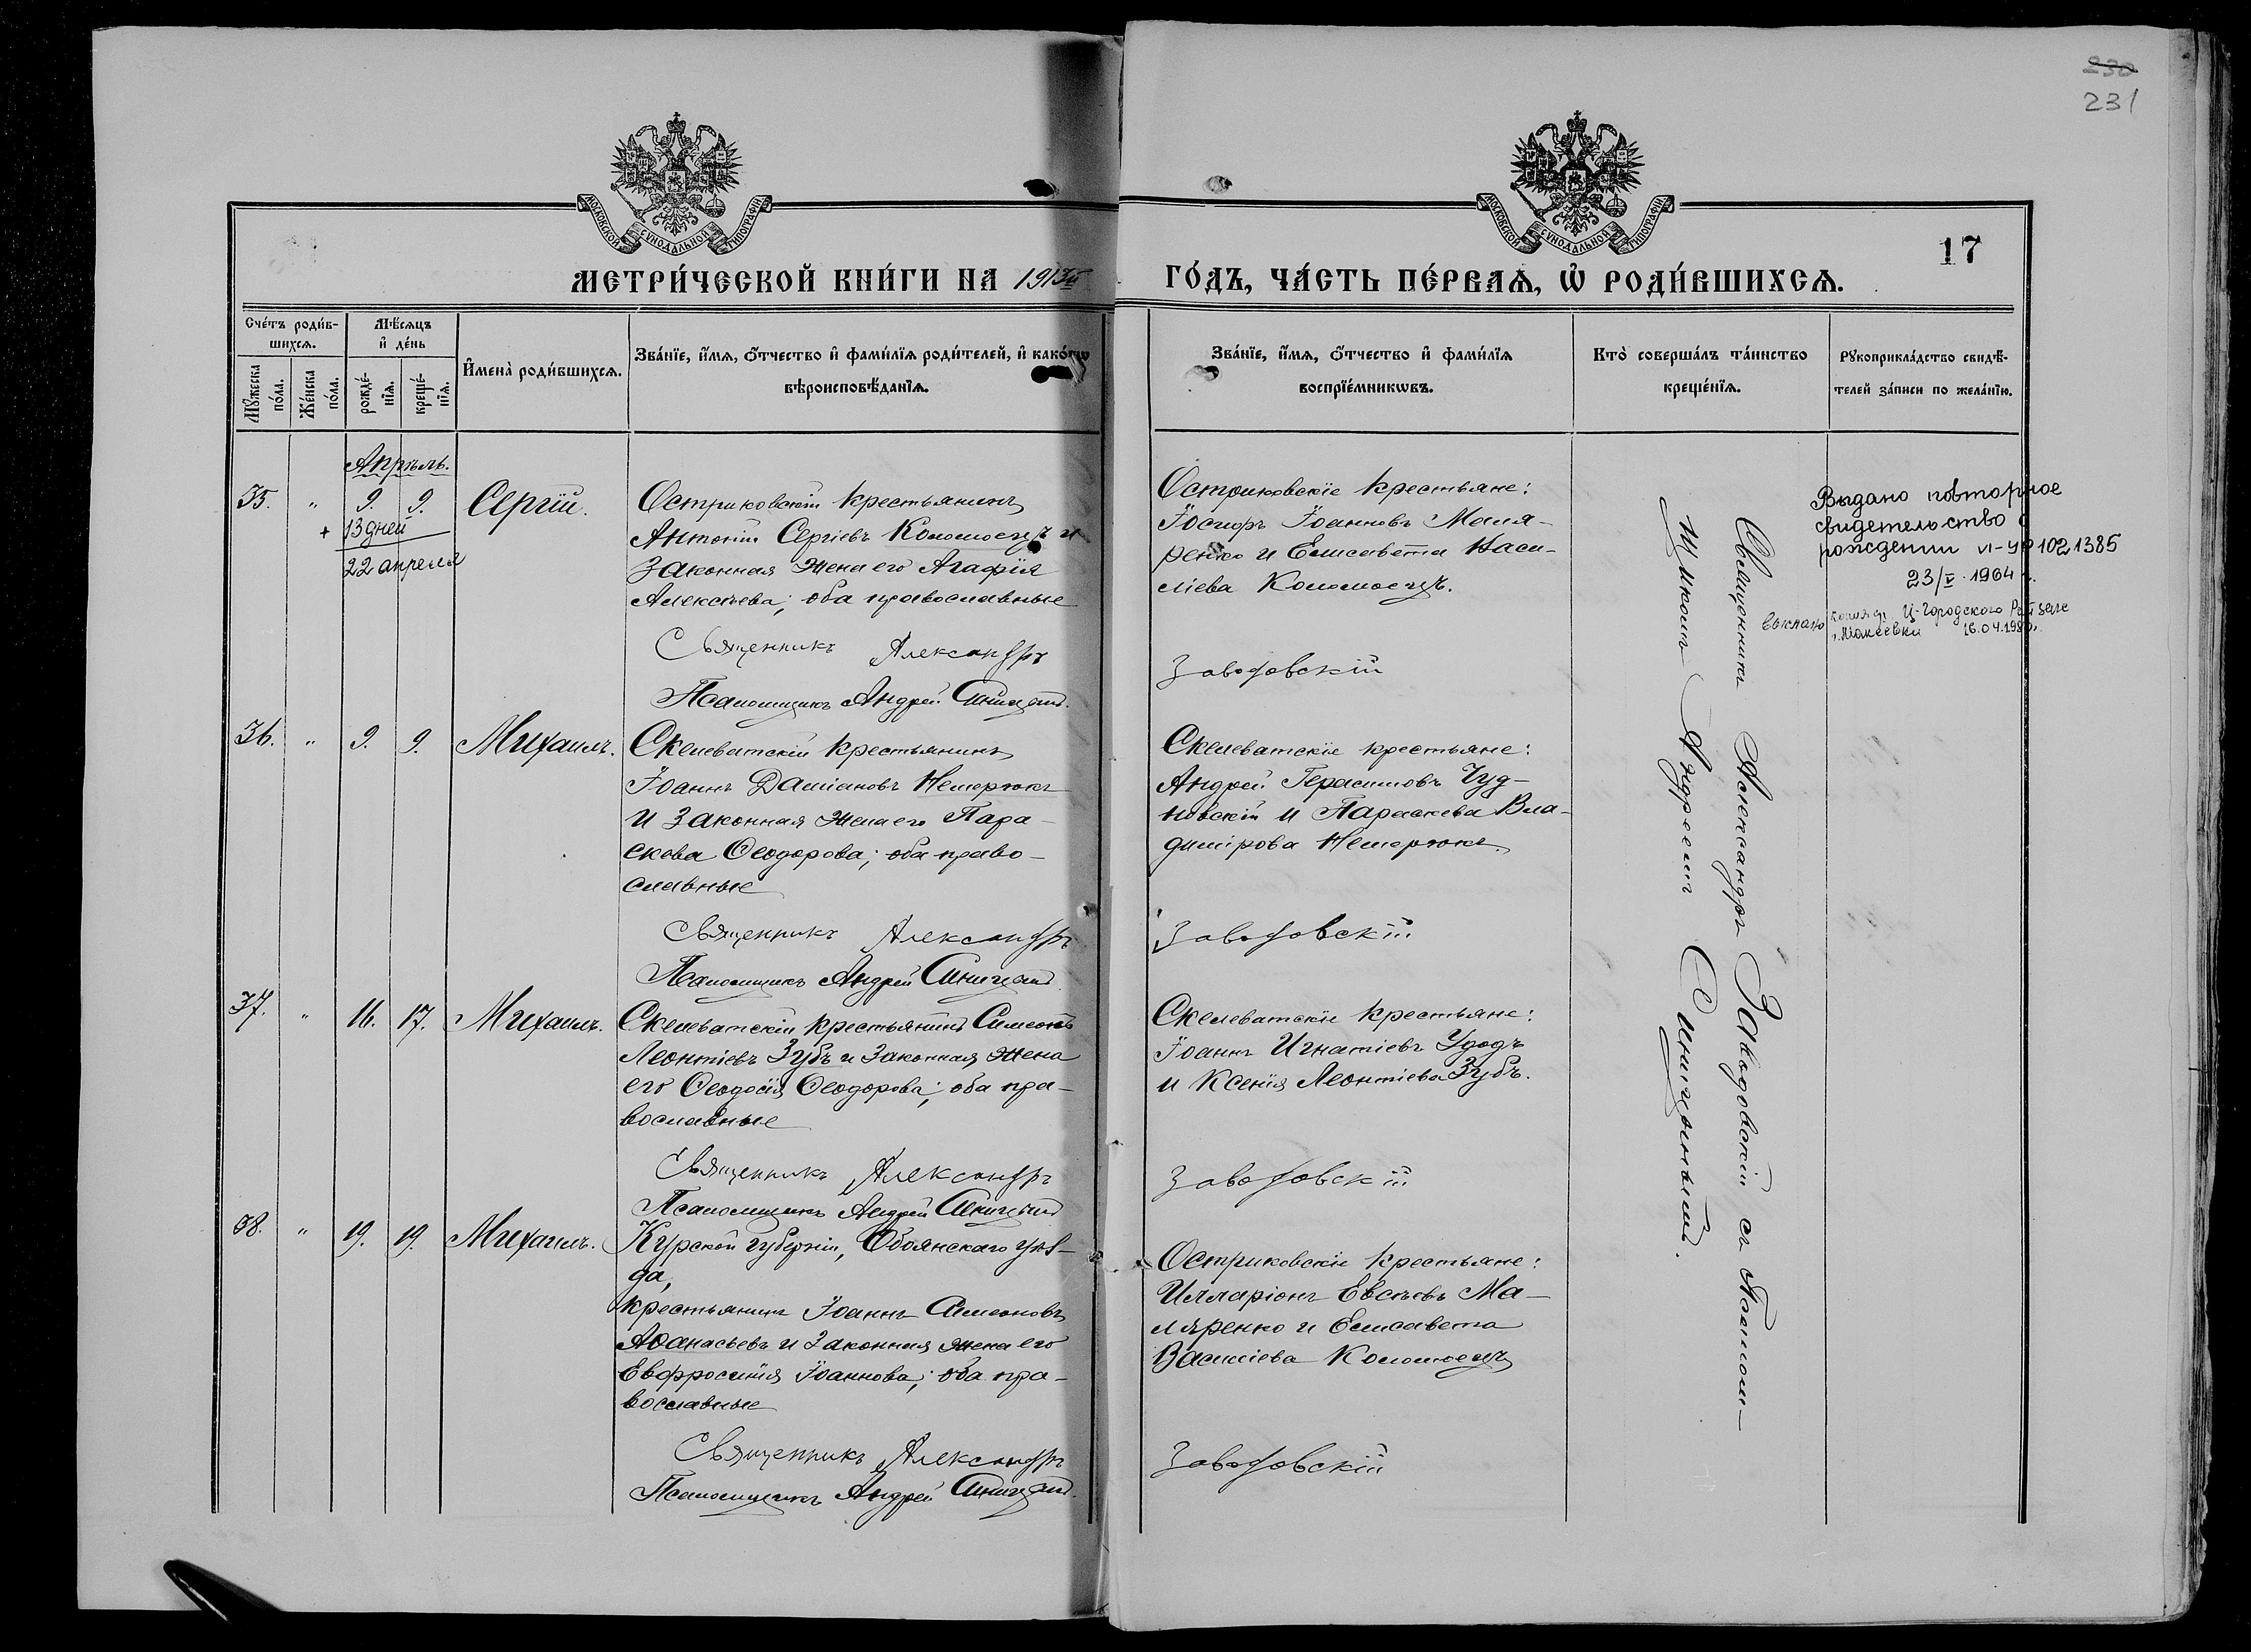 230
231
МОСКОВСКОЙ СѴНОДАЛЬНОЙ ТИПОГРАФІИ
МОСКОВСКОЙ СѴНОДАЛЬНОЙ ТИПОГРАФІИ
17
МЕТРИ́ЧЕСКОЙ КНИ́ГИ НА 1913й
ГО́ДЪ, ЧА́СТЬ ПЕ́РВАѦ, Ѡ҆ РОДИ́ВШИХСѦ.
Сче́тъ роди́в-
шихсѧ.
Мꙋ́жеска по́ла.
Же́нска по́ла.
Мѣ́сѧцъ
и҆ де́нь
рожде́-
нїѧ.
креще́-
нїѧ.
И҆мена̀ роди́вшихсѧ.
Зва́нїе, и҆́мѧ, ѻ҆́тчество и҆ фами́лїѧ роди́телей, и҆ како́гѡ
вѣроисповѣ́данїѧ.
Зва́нїе, и҆́мѧ, ѻ҆́тчество и҆ фами́лїѧ
воспрїе́мникѡвъ.
Кто̀ соверша́лъ та́инство
креще́нїѧ.
Рꙋкоприкла́дство свидѣ́-
телей за́писи по жела́нїю.
Апрѣль.
35. " 9. 9. Сергій.
+ 13 дней
22 апреля
Остриковскій крестьянинъ
Антоній Сергіевъ Коломоецъ и
законная жена его Агафія
Алексѣева; оба православные
Священникъ Александръ
Псаломщикъ Андрей
Остриковскіе крестьяне:
Іосифъ Іоанновъ Маля-
ренко и Елисавета Васи-
ліева Коломоецъ.
Заводовскій
Выдано повторное
свидетельство о
рождении VI-УР 1021385
23/V 1964 г.
Ц-Городского
г. Макеевки 16.04.198
36. " 9. 9. Михаилъ.
Скелеватскій крестьянинъ
Іоаннъ Даміановъ Немерюкъ
и законная жена его Пара-
скева Ѳеодорова; оба право-
славные
Священникъ Александръ
Псаломщикъ Андрей
Скелеватскіе крестьяне:
Андрей Герасимовъ Чуд-
новскій и Параскева Вла-
димірова Немерюкъ.
Заводовскій
37. " 16. 17. Михаилъ.
Скелеватскій крестьянинъ Симеонъ
Леонтіевъ Зубъ и законная жена
его Ѳеодосія Ѳеодорова; оба пра-
вославные
Священникъ Александръ
Псаломщикъ Андрей
Скелеватскіе крестьяне:
Іоаннъ Игнатіевъ Удодъ
и Ксенія Леонтіева Зубъ.
Заводовскій
38. " 19. 19. Михаилъ.
Курской губерніи, Обоянскаго уѣз-
да,
крестьянинъ Іоаннъ Симеоновъ
Аѳанасьевъ и законная жена его
Евфросинія Іоаннова; оба пра-
вославные
Священникъ Александръ
Псаломщикъ Андрей
Остриковскіе крестьяне:
Илларіонъ Евсѣевъ Ма-
ляренко и Елисавета
Василіева Коломоецъ
Заводовскій
Священникъ Александръ Заводовскій съ Псалом-
щикомъ Андреемъ